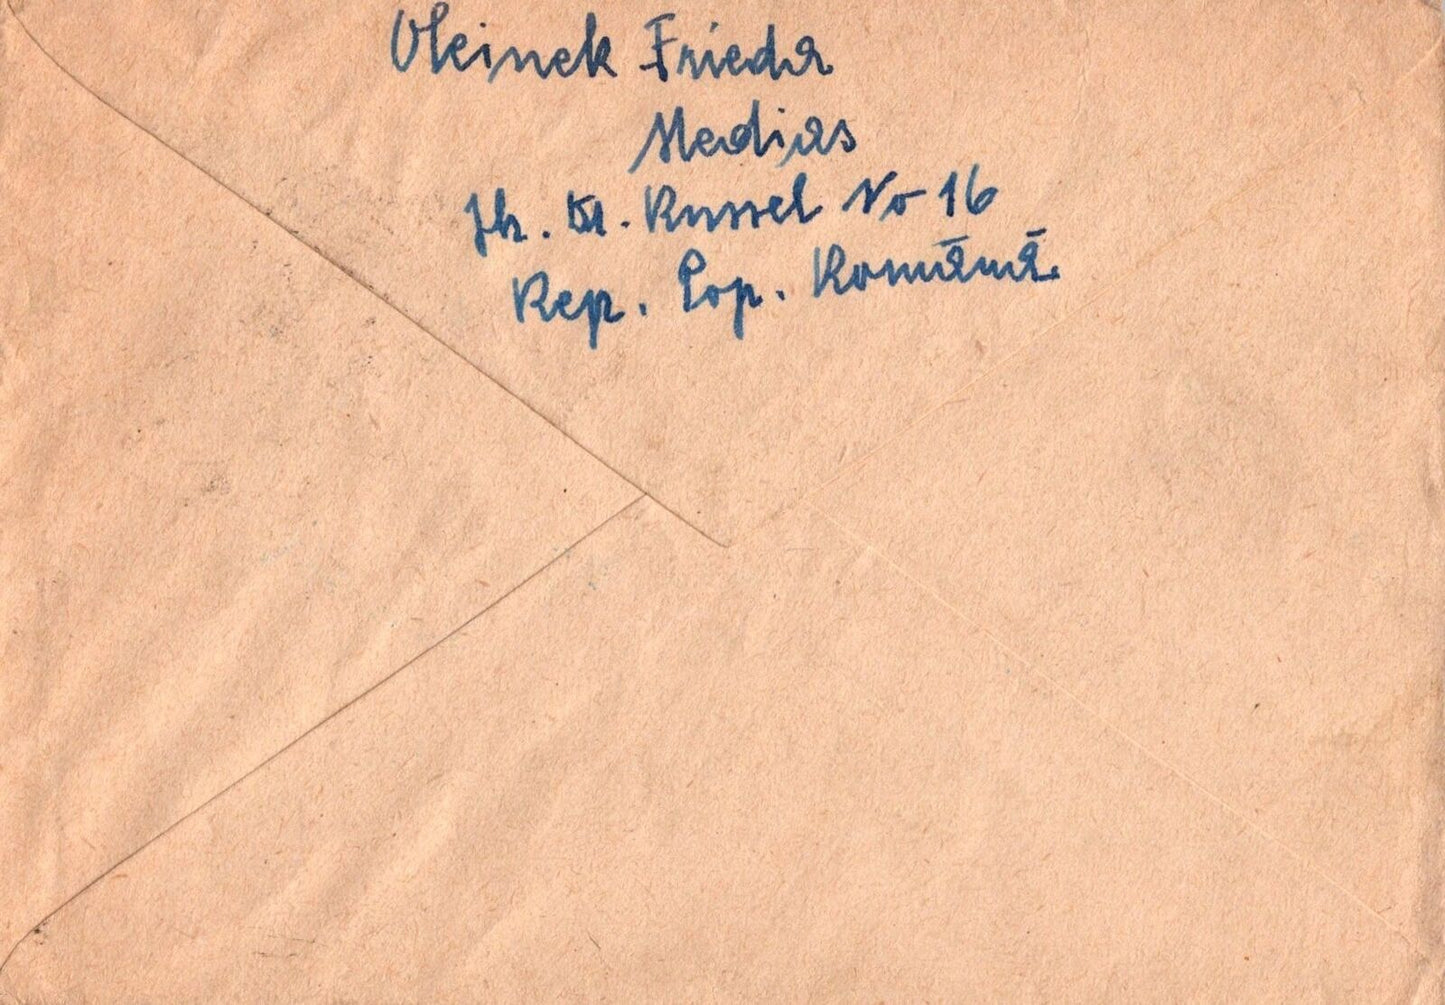 Oleinek Frieda
Medias
Str. Dr. Russel No 16
Rep. Pop. Română